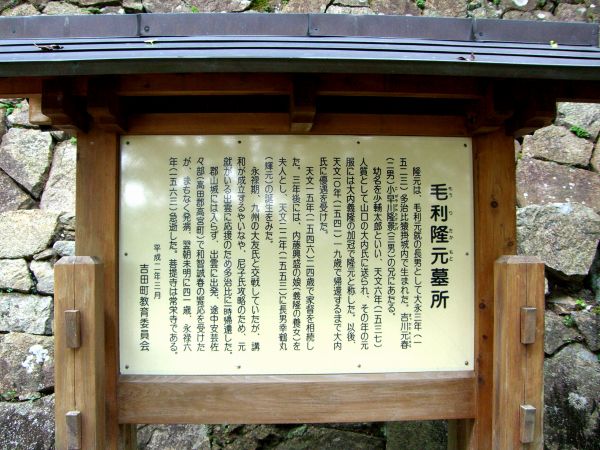 毛利隆元墓所
もうりたかもと
隆元は、毛利元就の長男として大永三年(一
五二三)多治比猿掛城内で生まれた。吉川元春
(二男)小早川隆景(三男)の兄にあたる。
幼名を少輔太郎といい、天文六年(一五三七)
人質として山口の大内氏に送られ、その年の元
服には大内義隆の加冠で隆元と称した。以後、
天文一〇年(一五四一)一九歳で帰還するまで大内
氏に優遇を受けた。
天文一五年(一五四六)二四歳で家督を相続し
た。三年後には、内藤興盛の娘(義隆の養女)を
夫人とし、天文二二年(一五五三)に長男幸鶴丸
(輝元)の誕生をみた。
永禄期、九州の大友氏と交戦していたが、講
和が成立するやいなや、尼子氏攻略のため、元
就がいる出雲に応援のため多治比に一時帰還した。
郡山城には入らず、出雲に出発、途中安芸佐
々部(高田郡高宮町)で和智誠春の饗応を受けた
が、まもなく発病、翌朝未明に四一歳、永禄六
年(一五六三)急逝した。菩提寺は常栄寺である。
平成二年三月
吉田町教育委員会